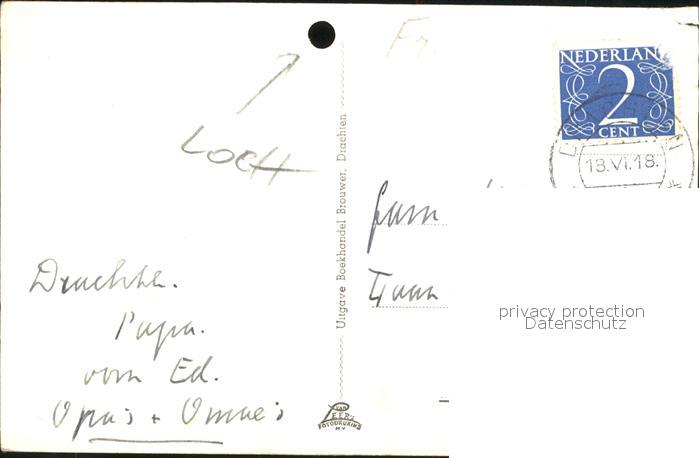 Fr.
NEDERLAND
2
CENT
18.VI.18.
LOCH
Uitgave Boekhandel Brouwer, Drachten
Fam
Papa.
vom Ed.
Opa's + Omae's
privacy protection
Datenschutz
VAN
LEER'S
FOTODRUKIND.
N.V.